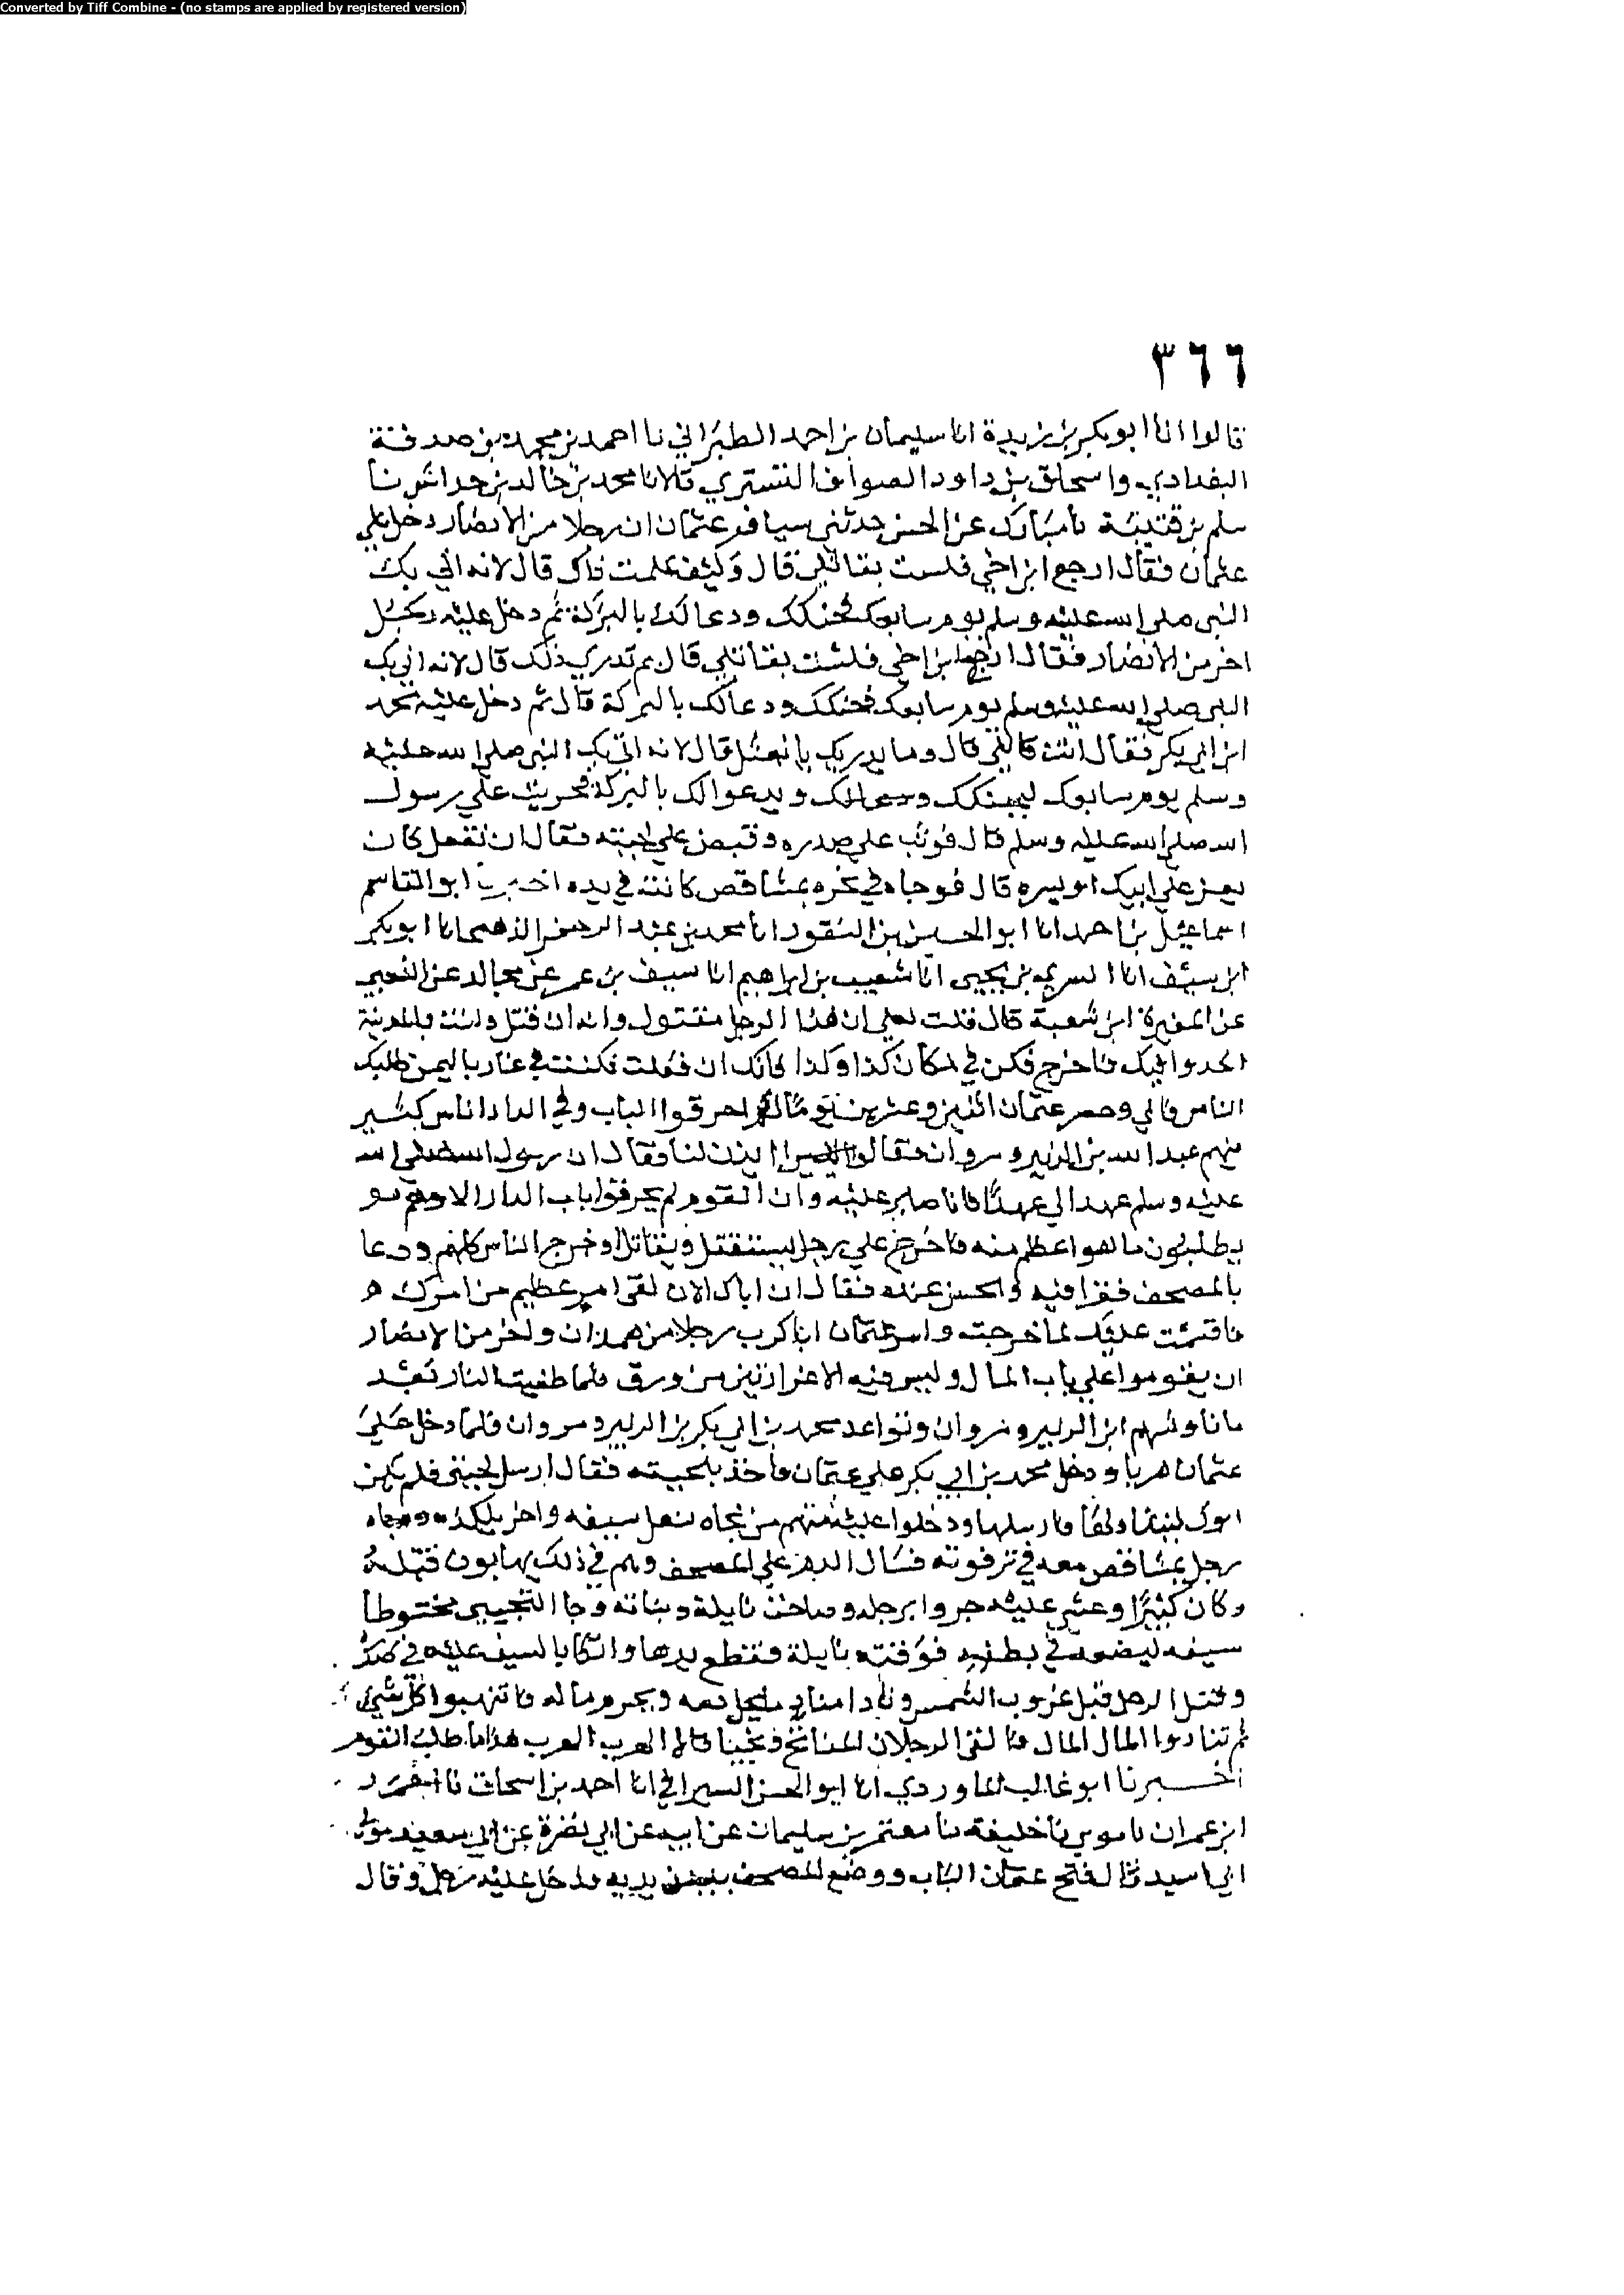 Converted by Tiff Combine - (no stamps are applied by registered version)
٣٦٦
قالوا انا ابو بكر بن زيدة انا سليمان بن احمد الطبراني نا احمد بن محمد بن صدقة
البغدادي واسحاق بن داود الصواف التستري قالانا محمد بن خالد بن خداش نا
سلم بن قتيبة نا مبارك عن الحسن حدثني سياف عثمان ان رجلا من الانصار دخل علي
عثمان فقال ارجع ابن اخي فلست بقاتلي قال وكيف علمت ذاك قال لانه اتي بك
النبي صلى الله عليه وسلم يوم سابعك فحنكك ودعا لك بالبركة ثم دخل عليه رجل
اخر من الانصار فقال ارجع ابن اخي فلست بقاتلي قال بم تدري ذلك قال لانه اتي بك
النبي صلي الله عليه وسلم يوم سابعك فحنكك ودعا لك بالبركة قال ثم دخل عليه محمد
ابن ابي بكر فقال انت قاتلي قال وما يدريك يا نعثل قال لانه اتي بك النبي صلى الله عليه
وسلم يوم سابعك ليحنكك ويدعوا لك بالبركة فخريت علي رسول
الله صلى الله عليه وسلم قال فوثب علي صدره وقبض علي لحيته فقال ان تفعل كان
يعز علي ابيك ان يسوه قال فوجاه في نحره بمشاقص كانت في يده اخبرنا ابو القاسم
اسماعيل بن احمد انا ابو الحسين بن النقور انا محمد بن عبد الرحمن الذهبي انا ابو بكر
ابن سيف انا السري بن يحيى انا شعيب بن ابراهيم انا سيف بن عمر عن مجالد عن الشعبي
عن المغيرة ابن شعبة قال قلت لعلي ان هذا الرجل مقتول وانه ان قتل وانت بالمدينة
الحدوا فيك فاخرج فكن في مكان كذا وكذا فانك ان فعلت فكنت في غار باليمن طلبك
الناس فابي وحصر عثمان اثنين وعشرين يوما ثم احرقوا الباب وفي الدار اناس كثير
منهم عبد الله بن الزبير ومروان فقالوا ايذن لنا فقال ان رسول الله صلى الله
عليه وسلم عهد الي عهدا فانا صابر عليه وان القوم لم يحرقوا باب الدار الا وهم
يطلبون ما هو اعظم منه فاحرج علي رجل يستقتل ويقاتل وخرج الناس كلهم ودعا
بالمصحف فقرا فيه والحسن عنده فقال ان اباك الان لفي امر عظيم من امرك
فاقسمت عليك لما خرجت وامر عثمان ابا كرب رجلا من همدان واخر من الانصار
ان يقوموا علي باب المال وليس فيه الا غرارتين من ورق فلما طفيت النار بعد
ما ناوشهم ابن الزبير ومروان وتواعد محمد بن ابي بكر بن الزبير ومروان فلما دخل علي
عثمان هربا ودخل محمد بن ابي بكر علي عثمان فاخذ بلحيته فقال ارسل لحيتي فلم يكن
ابوك ليتناولها فارسلها ودخلوا عليه فمنهم من يجاه بنعل سيفه واخر يلكزه وجاه
رجل بمشاقص معه في ترقوته فسال الدم علي المصحف وهم في ذلك يهابون قتله
وكان كبيرا وغشي عليه جروا برجله وصاحت نايلة وبناته وجا التجيبي مخترطا
سيفه ليضعه في بطنه فوقته نايلة فقطع يدها واتكا بالسيف عليه في صدره
وقتل الرجل قبل غروب الشمس ونادا مناد ما يحل دمه ويحرم ماله فانتهبوا كل شي
ثم تنادوا المال المال فالقى الرجلان المفاتح ونجينا قالا الهرب الهرب هذا ما طلب القوم
اخبرنا ابو غالب الماوردي انا ابو الحسن السيرافي انا احمد بن اسحاق نا احمد
ابن عمران نا موسي نا خليفة نا معتمر بن سليمان عن ابيه عن ابي نضرة عن ابي سعيد مولى
ابي اسيد قال فتح عثمان الباب ووضع المصحف بين يديه فدخل عليه رجل وقال